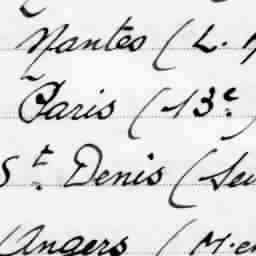 Nantes (L.
Paris (13e.)
St. Denis (Sei
Angers (M.